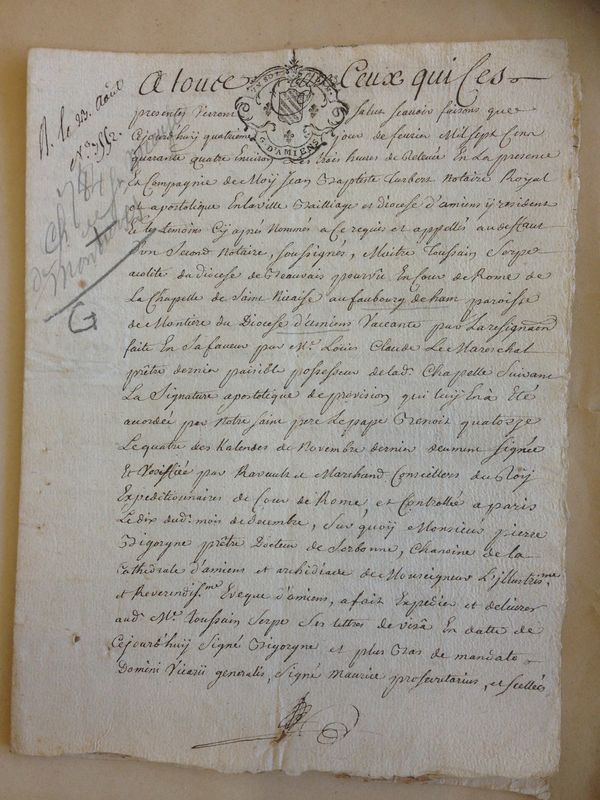 A touce Ceux qui Ces
presentes Verront Salut scavoir faisons que
Cejourd'huy quatrieme jour de fevrier Mil sept Cent
quarante quatre Environ Les trois heures de Relevée En La presence
et Compagnie de Moÿ Jean Baptiste Turbert Notaire Royal
et apostolique En la ville Bailliage et Diocese d'amiens ÿ resident
et les temoins Cy apres Nommés a Ce requis et appellés au deffaut
d'un Second Notaire, soussignés, Maitre Toussain Serpe
acolite du Diocese de Beauvais pourvû En Cour de Rome de
La Chapelle de Saint Nicaise au faubourg de ham paroisse
de Montiere du Diocese d'amiens Vaccante par La resignaon
faite En Sa faveur par Mre. Louis Claude Le Mareschal
prêtre dernier paisible possesseur de lad. Chapelle Suivant
La Signature apostolique de provision qui luy En a Eté
accordée par Notre Saint pere Le pape Benoit quatorze
Le quatre des Kalendes de Novembre dernier deument signée
Et Veriffiée par Marchand Conseillers du Roÿ
Expeditionnaires de Cour de Rome et Controllée a paris
Le dix dud. mois de decembre, Sur quoÿ Monsieur pierre
Bigorgne prêtre Docteur de Sorbonne, Chanoine de la
Cathedrale d'amiens et archidiacre de Monseigneur L'illustrisme
et Reverendiss.me Eveque d'amiens, a fait Expedier et delivrer
aud. Mre. Toussain Serpe Ses lettres de visâ En datte de
Cejourd'huÿ Signé Bigorgne et plus Bas de mandato
Domini Vicarii generalis, signé Maurice prosecretarius, et scellées
A. le 23. Août
No. 352.
Ch.
de
Montieres
G
G. D'AMIENS